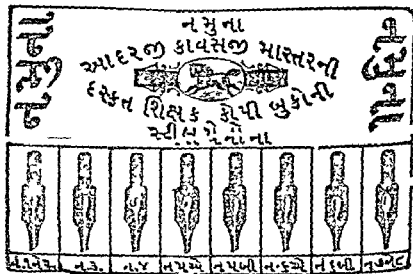 નમુના
આદરજી કાવસજી માસ્તરની
દસ્કત શિક્ષક કોપી બુકોની
સ્ટીલપેનોના
નમુના
નમુના
ન.૩.
ન.૪
ન૫એ
ન૫બી
ન૬એ
ન૬બી